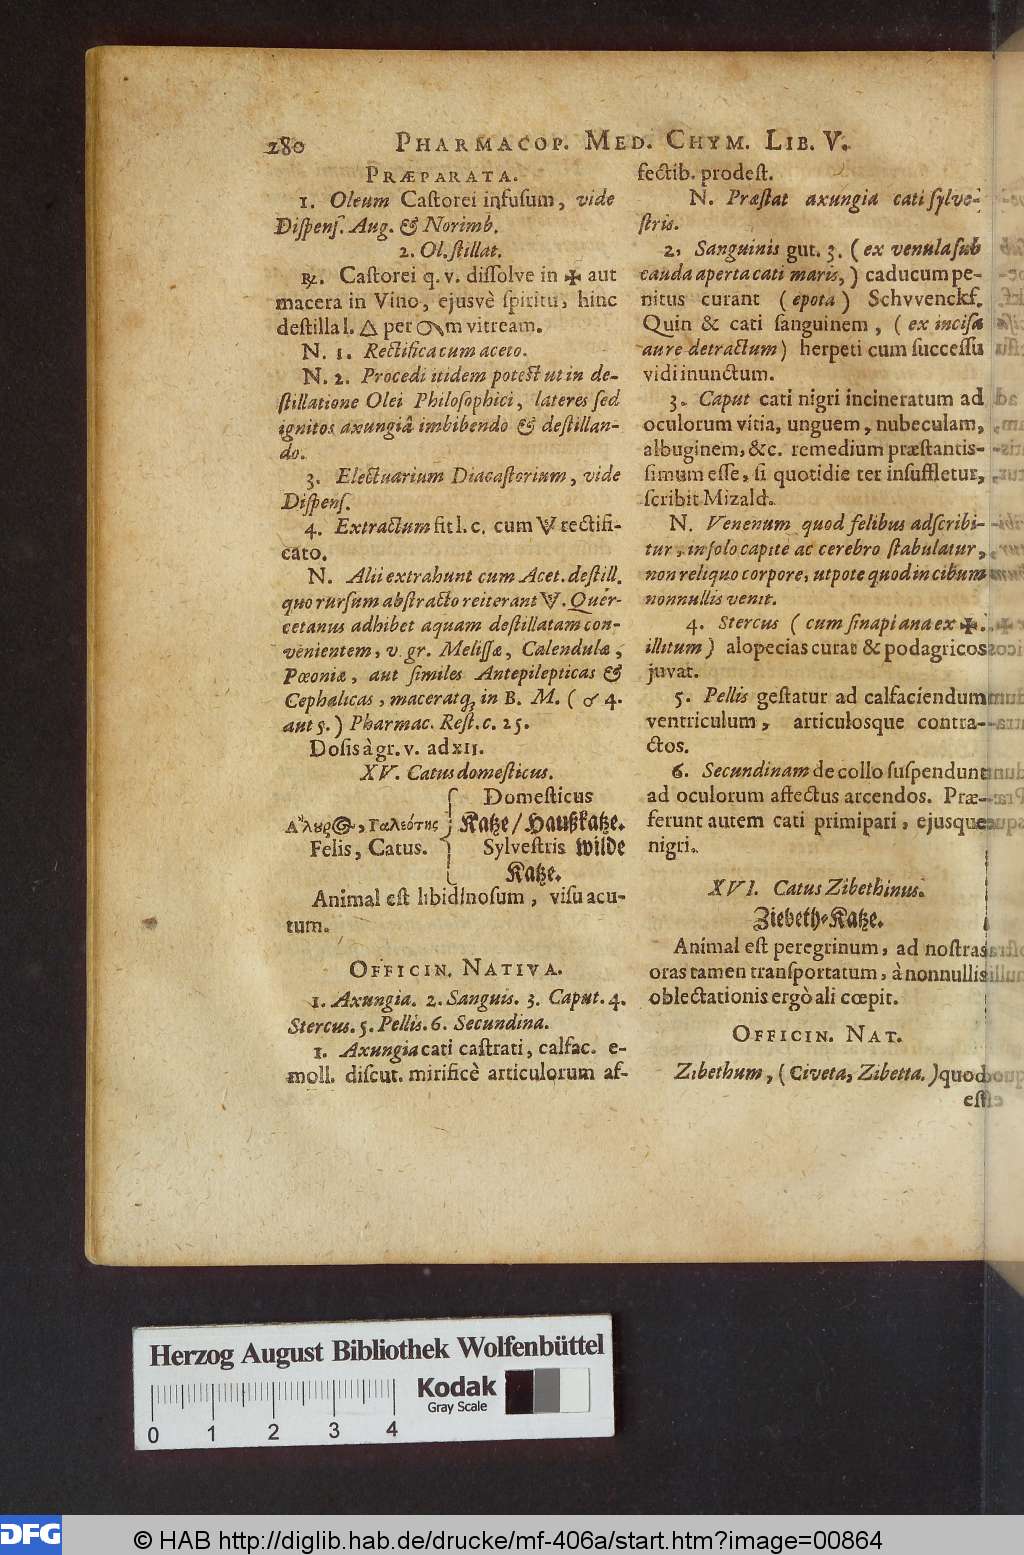 280 PHARMACOP. MED. CHYM. LIB. V.
PRÆPARATA.
1. Oleum Caſtorei infuſum, vide
Diſpenſ. Aug. & Norimb.
2. Ol. ſtillat.
℞. Caſtorei q. v. diſſolve in ✠ aut
macera in Vino, ejusvè ſpiritu, hinc
deſtilla l. △ per m vitream.
N. 1. Rectifica cum aceto.
N. 2. Procedi itidem poteſt ut in de-
ſtillatione Olei Philoſophici, lateres ſed
ignitos axungiâ imbibendo & deſtillan-
do.
3. Electuarium Diacaſtorium, vide
Diſpenſ.
4. Extractum fit l. c. cum rectifi-
cato.
N. Alii extrahunt cum Acet. deſtill.
quo rurſum abſtracto reiterant . Quer-
cetanus adhibet aquam deſtillatam con-
venientem, v. gr. Meliſſæ, Calendulæ,
Pæoniæ, aut ſimiles Antepilepticas &
Cephalicas, maceratq; in B. M. (♂ 4.
aut 5.) Pharmac. Reſt. c. 25.
Doſis à gr. v. ad XII.
XV. Catus domeſticus.
Domeſticus
Αἴλουρος, Γαλεότης Katze / Haußkatze.
Felis, Catus. Sylveſtris wilde
Katze.
Animal eſt libidinoſum, viſu acu-
tum.
OFFICIN. NATIVA.
1. Axungia. 2. Sanguis. 3. Caput. 4.
Stercus. 5. Pellis. 6. Secundina.
1. Axungia cati caſtrati, calfac. e-
moll. diſcut. mirificè articulorum af-
fectib. prodeſt.
N. Præſtat axungia cati ſylve-
ſtris.
2. Sanguinis gut. 3. (ex venula ſub
cauda aperta cati maris,) caducum pe-
nitus curant (epota) Schvvenckf.
Quin & cati ſanguinem, (ex inciſa
aure detractum) herpeti cum ſucceſſu
vidi inunctum.
3. Caput cati nigri incineratum ad
oculorum vitia, unguem, nubeculam,
albuginem, &c. remedium præſtantiſ-
ſimum eſſe, ſi quotidie ter inſuffletur,
ſcribit Mizald.
N. Venenum quod felibus adſcribi-
tur, in ſolo capite ac cerebro ſtabulatur,
non reliquo corpore, utpote quod in cibum
nonnullis venit.
4. Stercus (cum ſinapi ana ex ✠.
illitum) alopecias curat & podagricos
juvat.
5. Pellis geſtatur ad calfaciendum
ventriculum, articulosque contra-
ctos.
6. Secundinam de collo ſuſpendunt
ad oculorum affectus arcendos. Præ-
ferunt autem cati primipari, ejusque
nigri.
XVI. Catus Zibethinus.
Ziebeth-Katze.
Animal eſt peregrinum, ad noſtras
oras tamen tranſportatum, à nonnullis
oblectationis ergò ali cœpit.
OFFICIN. NAT.
Zibethum, (Civeta, Zibetta.) quod
eſt
Herzog August Bibliothek Wolfenbüttel
Kodak
Gray Scale
0 1 2 3 4
DFG
© HAB http://diglib.hab.de/drucke/mf-406a/start.htm?image=00864